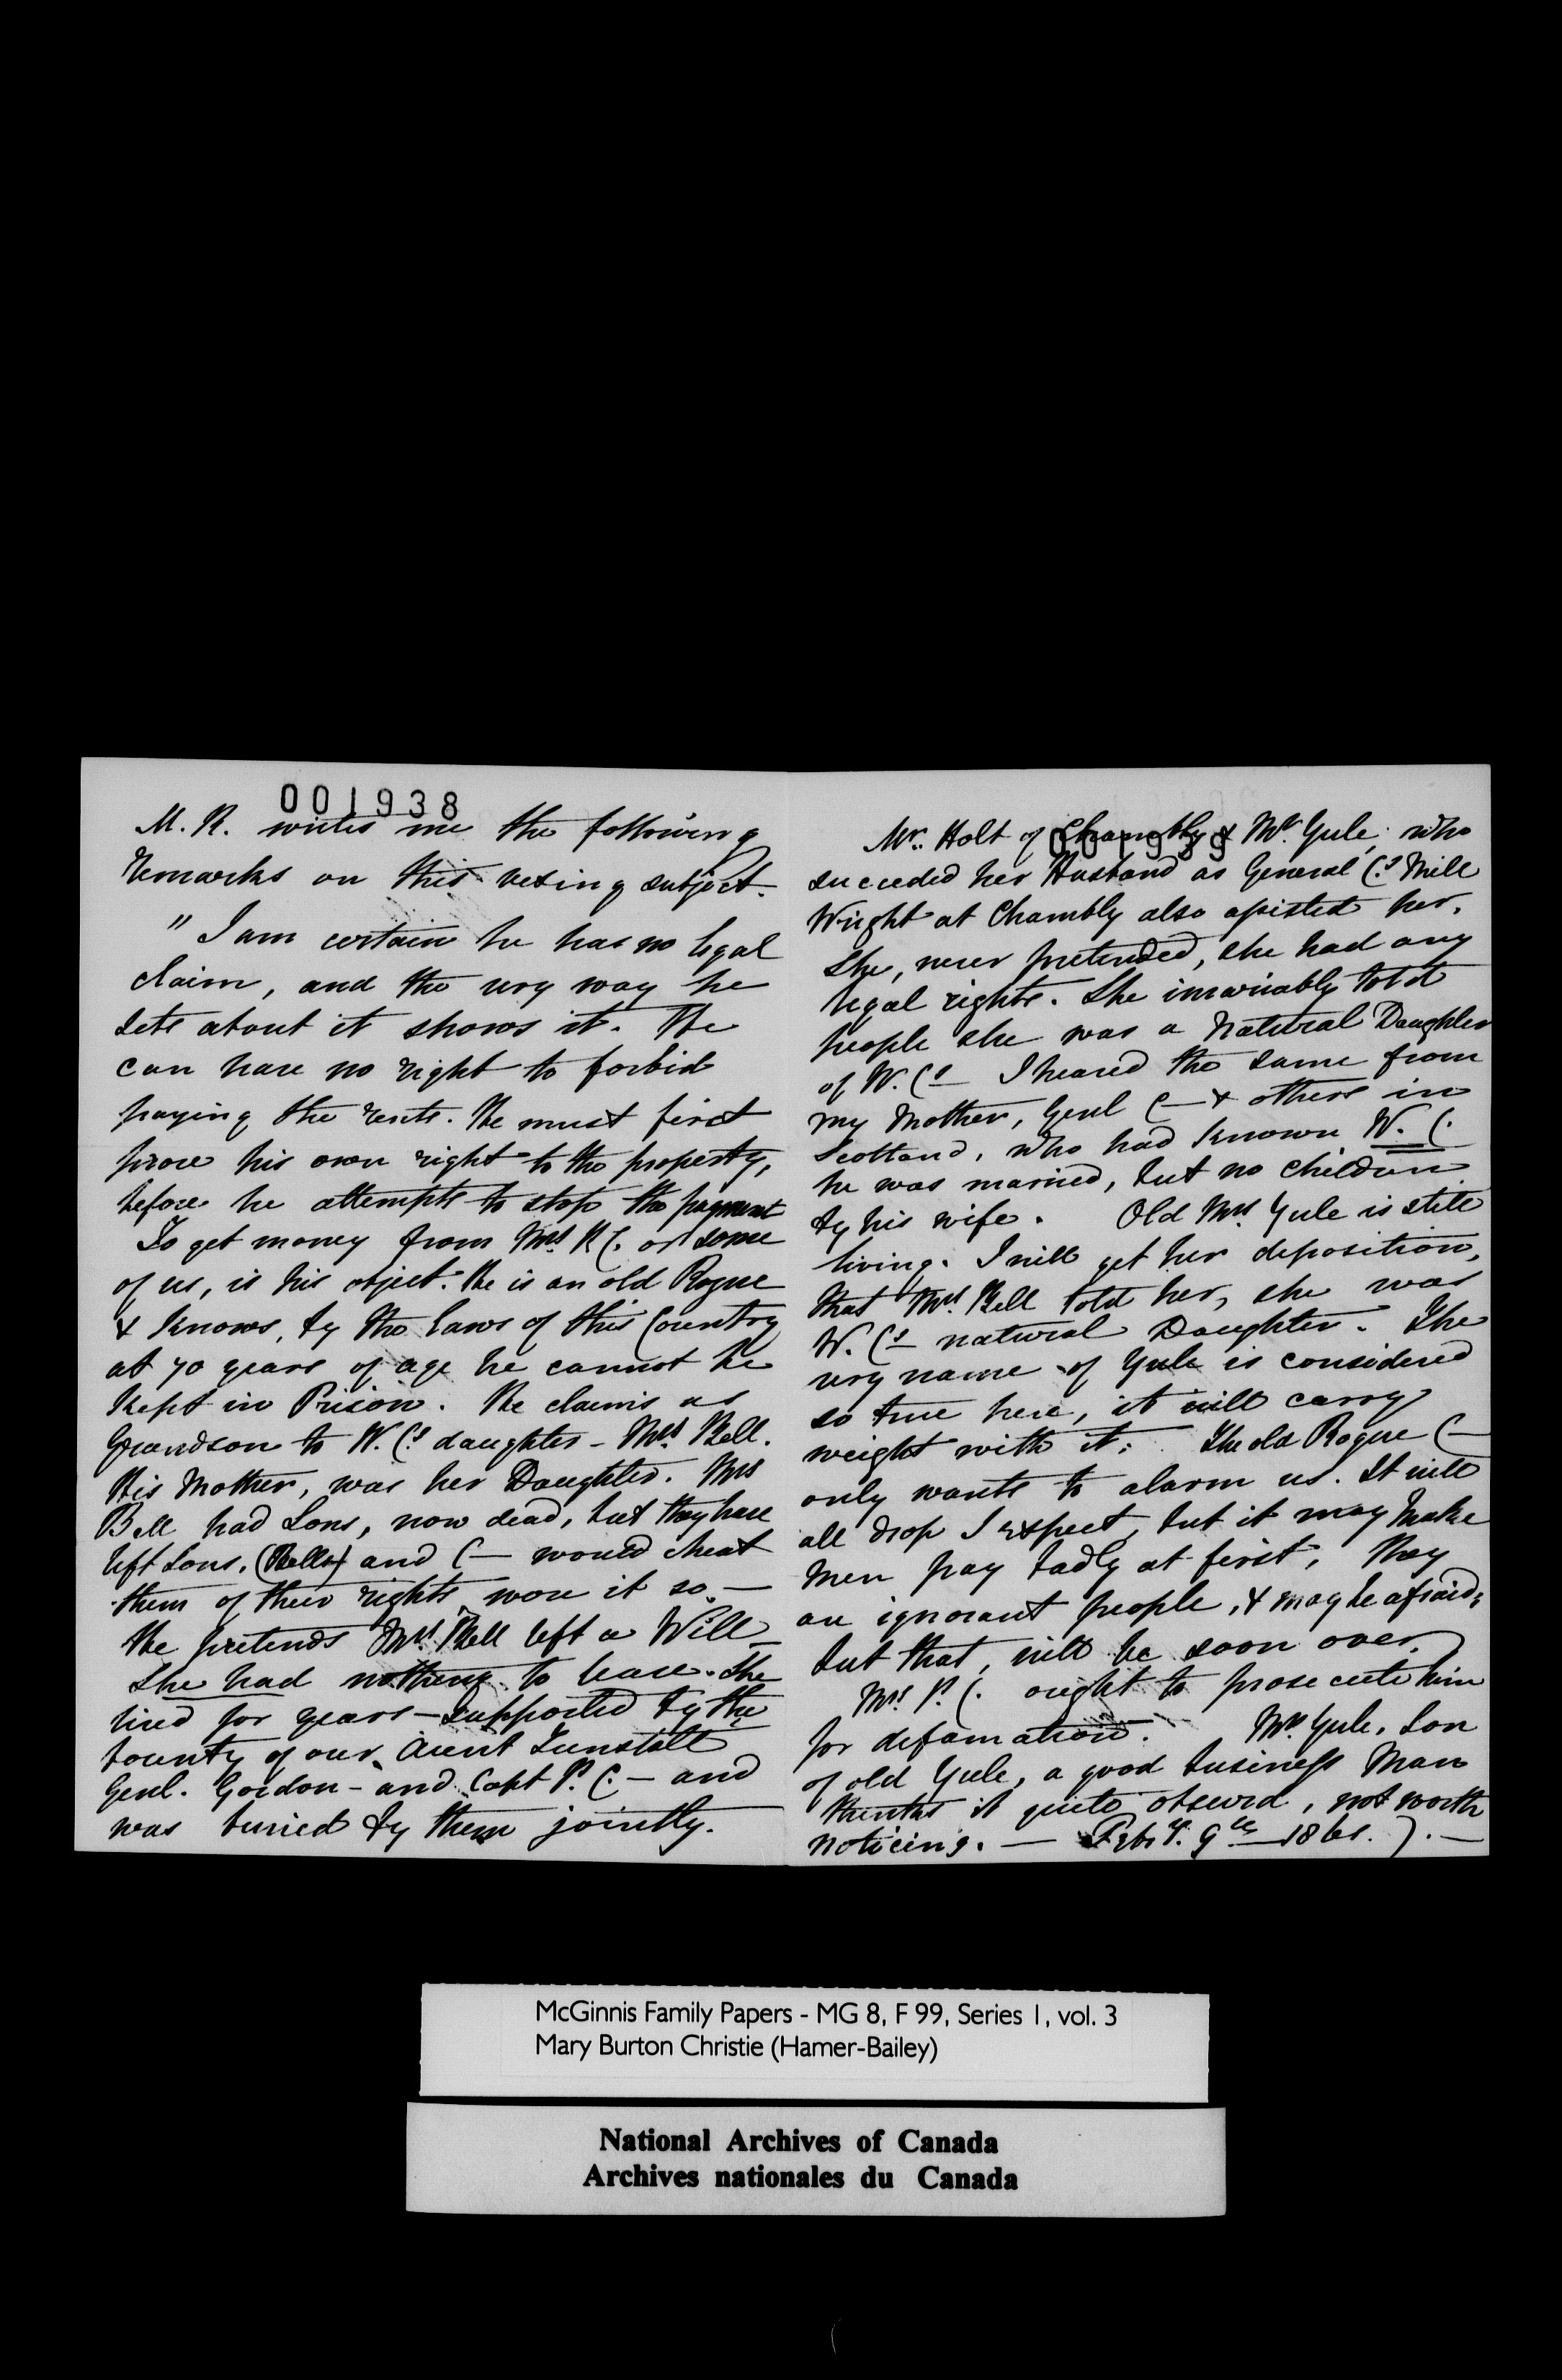 001938
M. R. writes me the following
remarks on this vexing subject.
"I am certain he has no legal
claim, and the very way he
sets about it shows it. He
can have no right to forbid
paying the rents. He must first
prove his own right to the property,
before he attempts to stop the payment
To get money from Mrs. P. C. or some
of us, is his object. He is an old Rogue
& knows, by the Laws of this Country
at 70 years of age he cannot be
kept in Prison. He claims as
Grandson to W. C.s daughter - Mrs. Bell.
His Mother, was her Daughter. Mrs
Bell had Sons, now dead, but they have
left Sons. (Bells) and C— would cheat
them of their rights were it so —
He pretends Mrs. Bell left a Will —
She had nothing to leave. She
lived for years — supported by the
bounty of our Aunt Tunstall
Genl. Gordon - and Capt P. C. — and
was buried by them jointly.
001939
Mr. Holt of Chambly & Mr. Yule, who
succeeded her Husband as General C.s Mill
Wright at Chambly also assisted her.
She, never pretended, she had any
legal rights. She invariably told
people she was a Natural Daughter
of W. C.s — I heard the same from
my Mother, Genl C— & others in
Scotland, who had known W. C.
he was married, but no children
by his wife. Old Mrs. Yule is still
living. I will get her deposition,
that Mrs. Bell told her, she was
W. C.s — natural Daughter. The
very name of Yule is considered
so true here, it will carry
weight with it. The old Rogue C—
only wants to alarm us. It will
all drop I expect, but it may make
Men pay badly at first, They
are ignorant people, & may be afraid;
but that, will be soon over.
Mrs. P. C. ought to prosecute him
for defamation. Mr. Yule, Son
of old Yule, a good business Man
thinks it quite absurd, not worth
noticing. — Feby. 9th — 1861. ). —
McGinnis Family Papers - MG 8, F 99, Series 1, vol. 3
Mary Burton Christie (Hamer-Bailey)
National Archives of Canada
Archives nationales du Canada